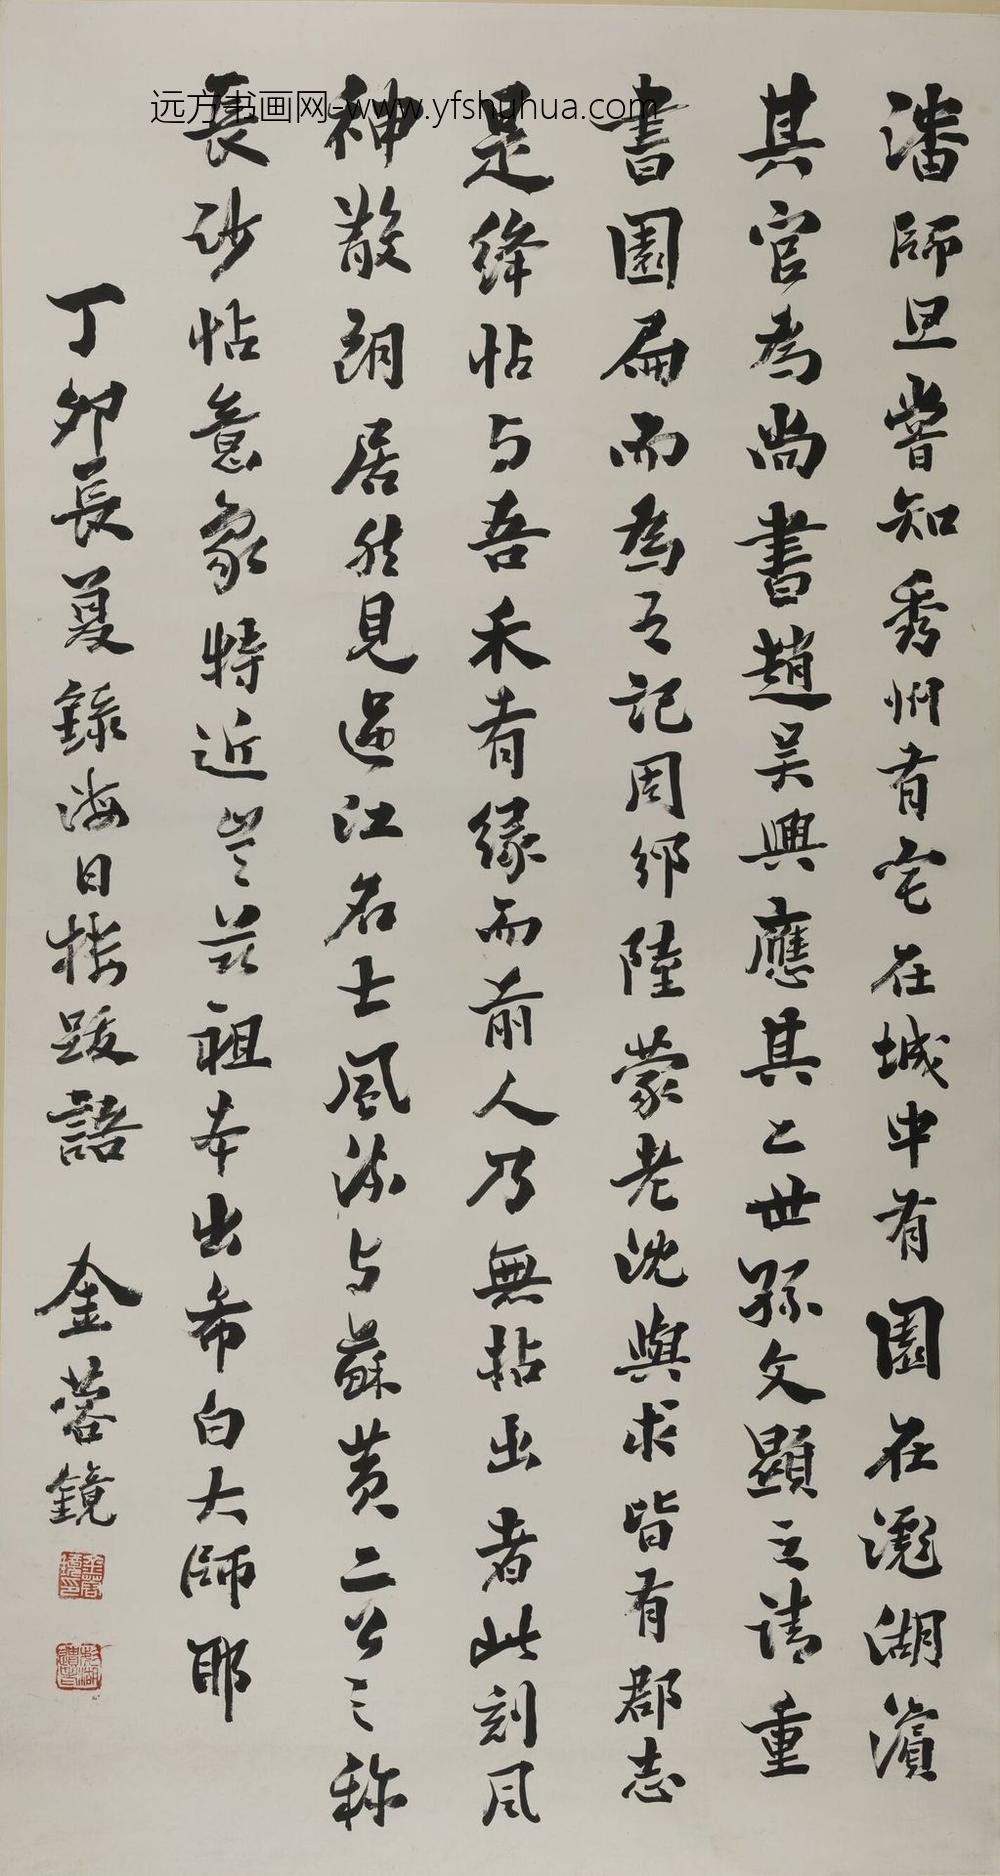 远方书画网-www.yfshuhua.com
潘師旦嘗知秀州有宅在城中有園在滮湖濱
其官為尚書趙吳興應其七世孫文顯之請重
書園扁而為之記周邠陸蒙老沈與求皆有郡志
是絳帖与吾禾有緣而前人乃無拈出者此刻風
神散朗居然見過江名士風流与蘇黃二公之称
長沙帖意象特近豈茲祖本出希白大師耶
丁卯長夏錄海日樓跋語 金蓉鏡
金蓉鏡印
滮湖遺老